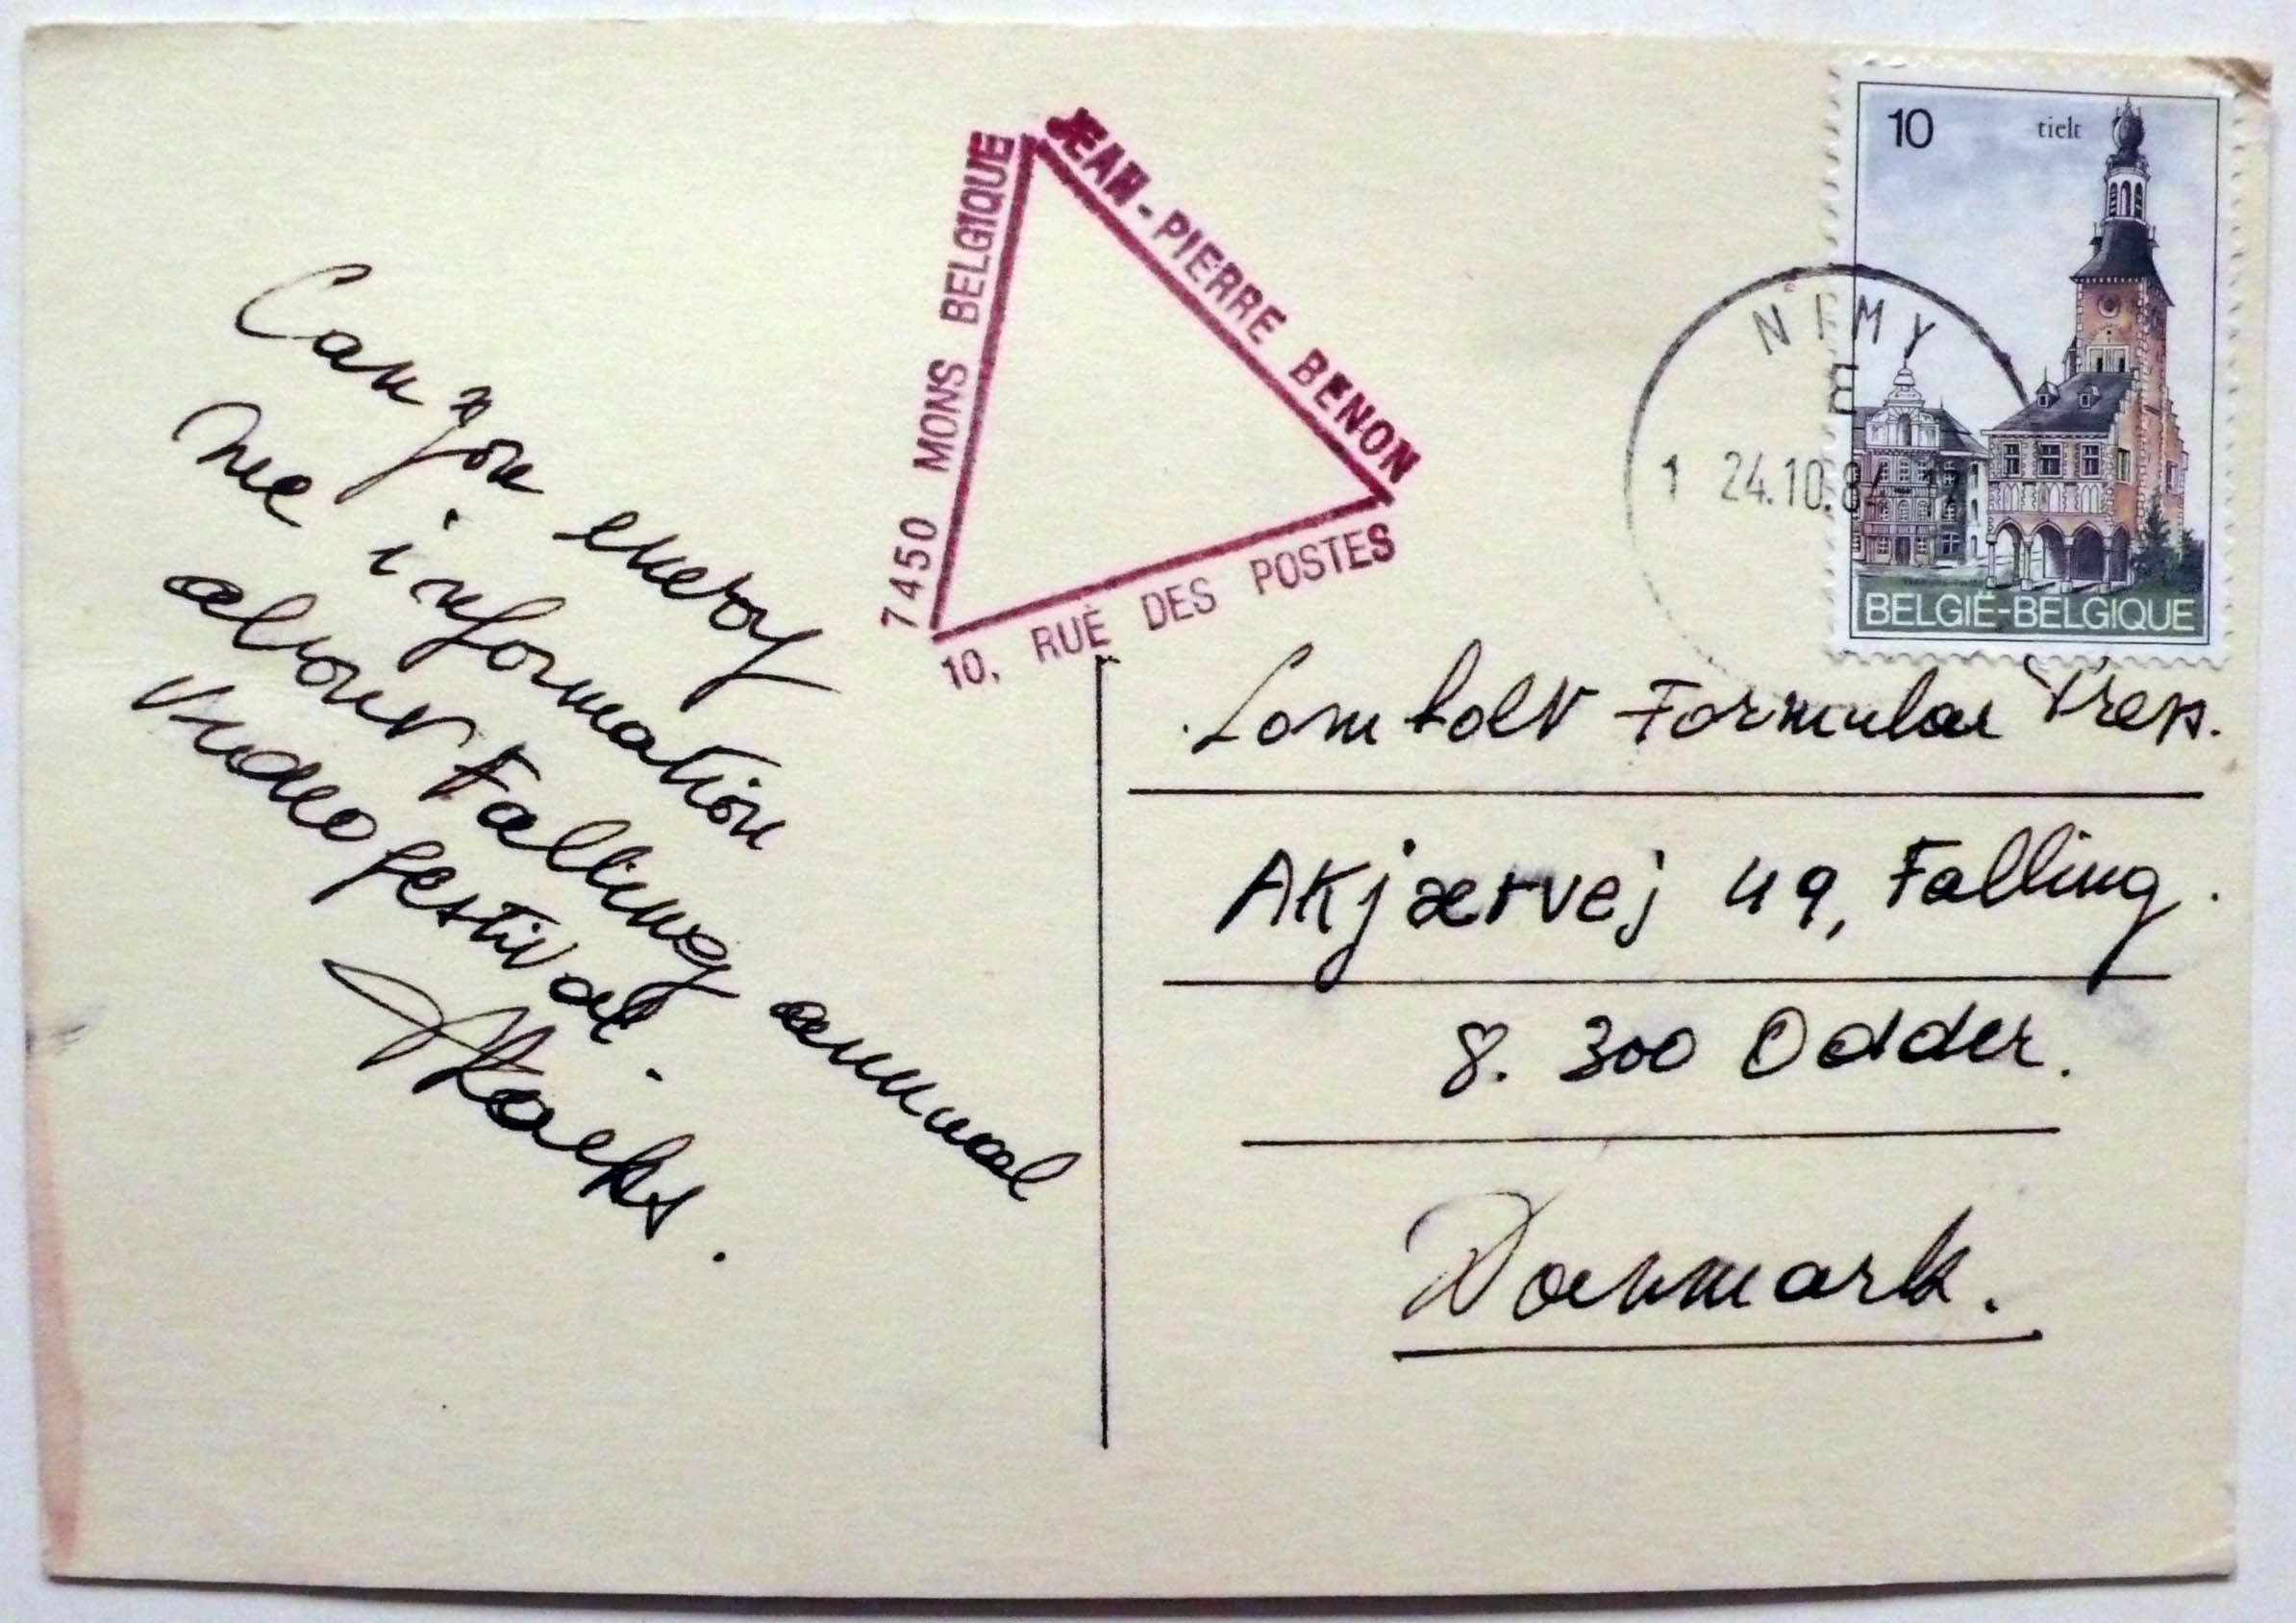 Can you
every
me information
about Falling annual
video festival.
Thanks.
7450 MONS BELGIQUE
JEAN-PIERRE BENON
10. RUE DES POSTES
10 tielt
BELGIË-BELGIQUE
NIMY
E
1 24.10.84
Lomholt Formular Press.
Akjærvej 49, Falling.
8.300 Odder.
Danmark.